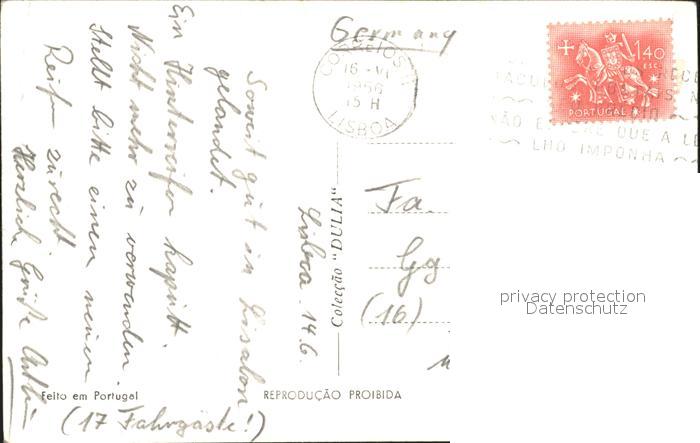 Germany
CORREIOS
16 - VI
1956
15 H
LISBOA
1$40
ESC.
PORTUGAL
NÃO ESPERE QUE A LE
LHO IMPONHA
Lisboa. 14.6.
Soweit gut in Lissabon
gelandet.
Ein Hinterreifen kaputt.
Nicht mehr zu verwenden.
Stellt bitte einen neuen
Reifen zurecht.
Herzliche Grüße
(17 Fahrgäste!)
Colecção "DULIA"
Fa.
Gg
(16)
privacy protection
Datenschutz
Feito em Portugal
REPRODUÇÃO PROIBIDA